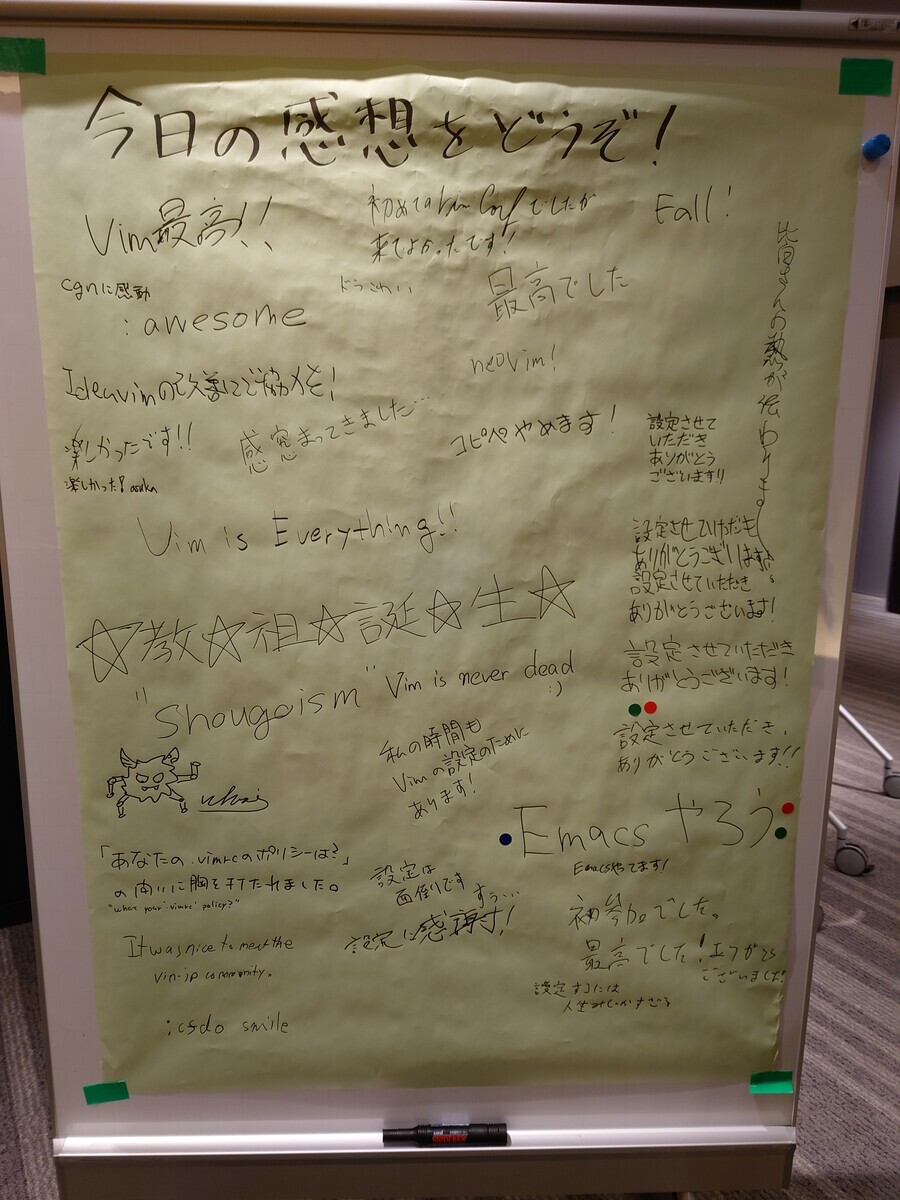 今日の感想をどうぞ!
Vim最高!!
初めてのVim Confでしたが
来てよかったです!
Fall!
皆さんの熱が伝わります
cgnに感動
:awesome
最高でした
neovim!
Ideavimの改善にご協力を!
楽しかったです!!
感窮まってきました…
コピペやめます!
設定させて
いただき
ありがとう
ございます!!
楽しかった! asuka
Vim is Everything!!
設定させていただき
ありがとうございます!
設定させていただき
ありがとうございます!
☆教☆祖☆誕☆生☆
設定させていただき
ありがとうございます!
"Shougoism"
Vim is never dead
:)
設定させていただき、
ありがとうございます!!
私の時間も
Vimの設定のために
あります!
Emacs やろう
Emacsやってます!
「あなたの.vimrcのポリシーは?」
の問いに胸を打たれました。
"what your 'vimrc' policy?"
設定は
面倒です
設定に感謝!
初参加でした。
最高でした!
ございました!
It was nice to meet the
vim-jp community.
設定するには
人生みじかすぎる
:cfdo smile